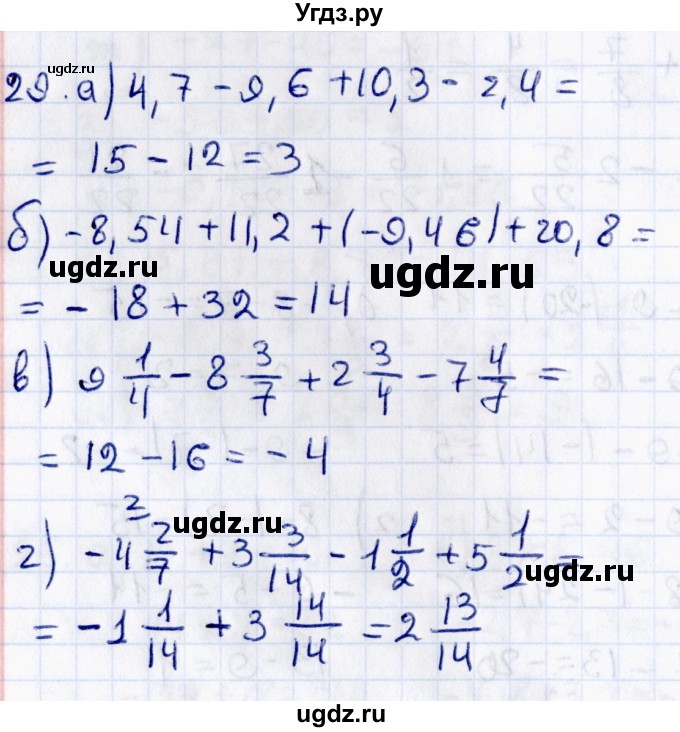 Угдз.ру
ugdz.ru
29. а) 4,7 - 9,6 + 10,3 - 2,4 =
= 15 - 12 = 3
б) -8,54 + 11,2 + (-9,46) + 20,8 =
ugdz.ru ugdz.ru
= - 18 + 32 = 14
в) 9 1/4 - 8 3/7 + 2 3/4 - 7 4/7 =
= 12 - 16 = - 4
ugdz.ru
г) - 4 2/7 + 3 3/14 - 1 1/2 + 5 1/2 =
= -1 1/14 + 3 14/14 = 2 13/14
ugdz.ru
ugdz.ru